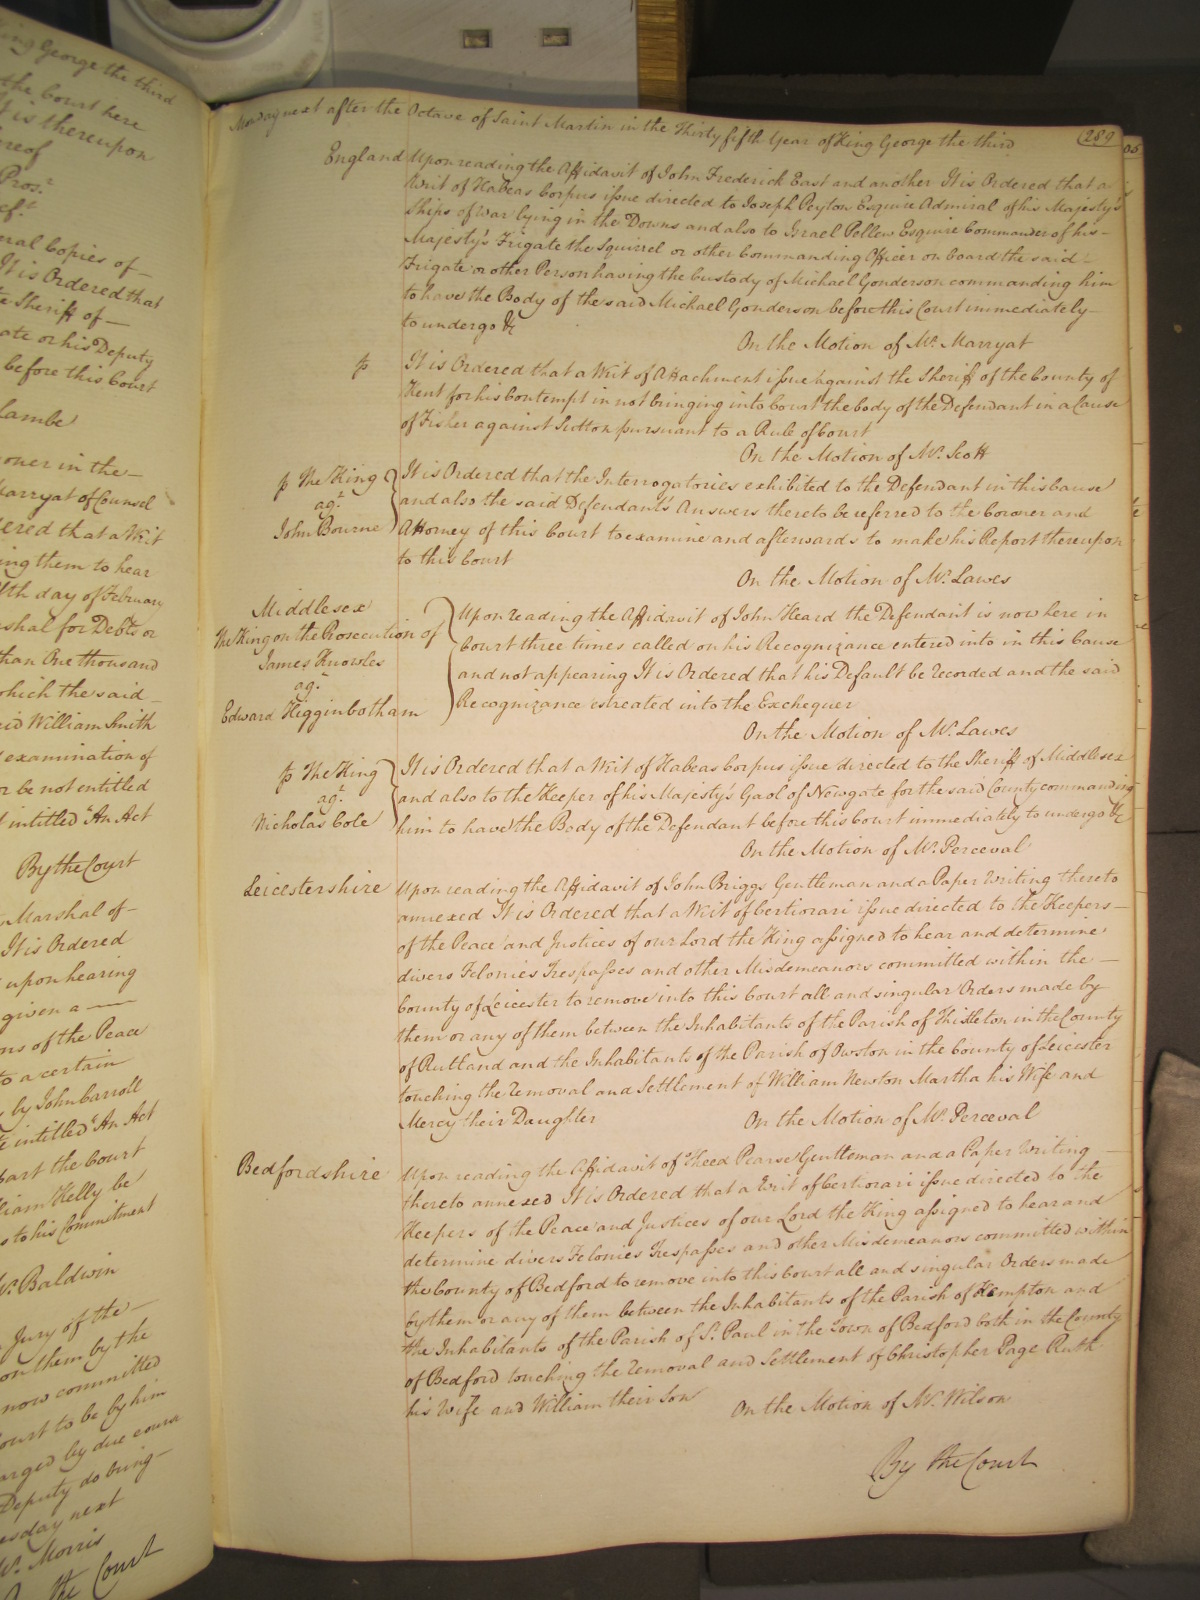 ing George the third
the Court here
It is thereupon
ereof
Pros.r
ef.t
eral Copies of
It is Ordered that
e Sheriff of
ate or his Deputy
before this Court
Lambe
oner in the
Marryat of Counsel
dered that a Writ
ing them to hear
lth day of February
shal for Debts or
than One thousand
which the said
aid William Smith
examination of
or be not entitled
intitled "An Act
By the Court
Marshal of
It is Ordered
upon hearing
given a
ns of the Peace
to a certain
by John Carroll
e intitled "An Act
part the Court
liam Kelly be
to his Commitment
Mr. Baldwin
Jury of the
on them by the
now committed
Court to be by him
arged by due course
Deputy do bring
esday next
Mr. Morris
By the Court
Monday next after the Octave of Saint Martin in the Thirty fifth Year of King George the third
289
England Upon reading the Affidavit of John Frederick East and another It is Ordered that a
Writ of Habeas Corpus issue directed to Joseph Peyton Esquire Admiral of his Majesty's
Ships of War lying in the Downs and also to Israel Pellew Esquire Commander of his
Majesty's Frigate the Squirrel or other Commanding Officer on board the said
Frigate or other Person having the Custody of Michael Gonderson commanding him
to have the Body of the said Michael Gonderson before this Court immediately
to undergo &c
On the Motion of Mr. Marryat
It is Ordered that a Writ of Attachment issue against the Sheriff of the County of
Kent for his Contempt in not bringing into Court the body of the Defendant in a Cause
of Fisher against Sutton pursuant to a Rule of Court
On the Motion of Mr. Scott
The King
ag.t
John Bourne
It is Ordered that the Interrogatories exhibited to the Defendant in this Cause
and also the said Defendant's Answers thereto be referred to the Coroner and
Attorney of this Court to examine and afterwards to make his Report thereupon
to this Court
On the Motion of Mr. Lawes
Middlesex
The King on the Prosecution of
James Knowles
ag.t
Edward Higginbotham
Upon reading the Affidavit of John Heard the Defendant is now here in
Court three times called on his Recognizance entered into in this Cause
and not appearing It is Ordered that his Default be recorded and the said
Recognizance estreated into the Exchequer
On the Motion of Mr. Lawes
The King
ag.t
Nicholas Cole
It is Ordered that a Writ of Habeas Corpus issue directed to the Sheriff of Middlesex
and also to the Keeper of his Majesty's Gaol of Newgate for the said County commanding
him to have the Body of the Defendant before this Court immediately to undergo &c
On the Motion of Mr. Perceval
Leicestershire Upon reading the Affidavit of John Briggs Gentleman and a Paper Writing thereto
annexed It is Ordered that a Writ of Certiorari issue directed to the Keepers
of the Peace and Justices of our Lord the King assigned to hear and determine
divers Felonies Trespasses and other Misdemeanors committed within the
County of Leicester to remove into this Court all and singular Orders made by
them or any of them between the Inhabitants of the Parish of Thistleton in the County
of Rutland and the Inhabitants of the Parish of Owston in the County of Leicester
touching the removal and Settlement of William Newton Martha his Wife and
Mercy their Daughter
On the Motion of Mr. Perceval
Bedfordshire Upon reading the Affidavit of Theed Pearse Gentleman and a Paper Writing
thereto annexed It is Ordered that a Writ of Certiorari issue directed to the
Keepers of the Peace and Justices of our Lord the King assigned to hear and
determine divers Felonies Trespasses and other Misdemeanors committed within
the County of Bedford to remove into this Court all and singular Orders made
by them or any of them between the Inhabitants of the Parish of Kempton and
the Inhabitants of the Parish of St. Paul in the Town of Bedford both in the County
of Bedford touching the removal and Settlement of Christopher Page Ruth
his Wife and William their Son
On the Motion of Mr. Wilson
By the Court